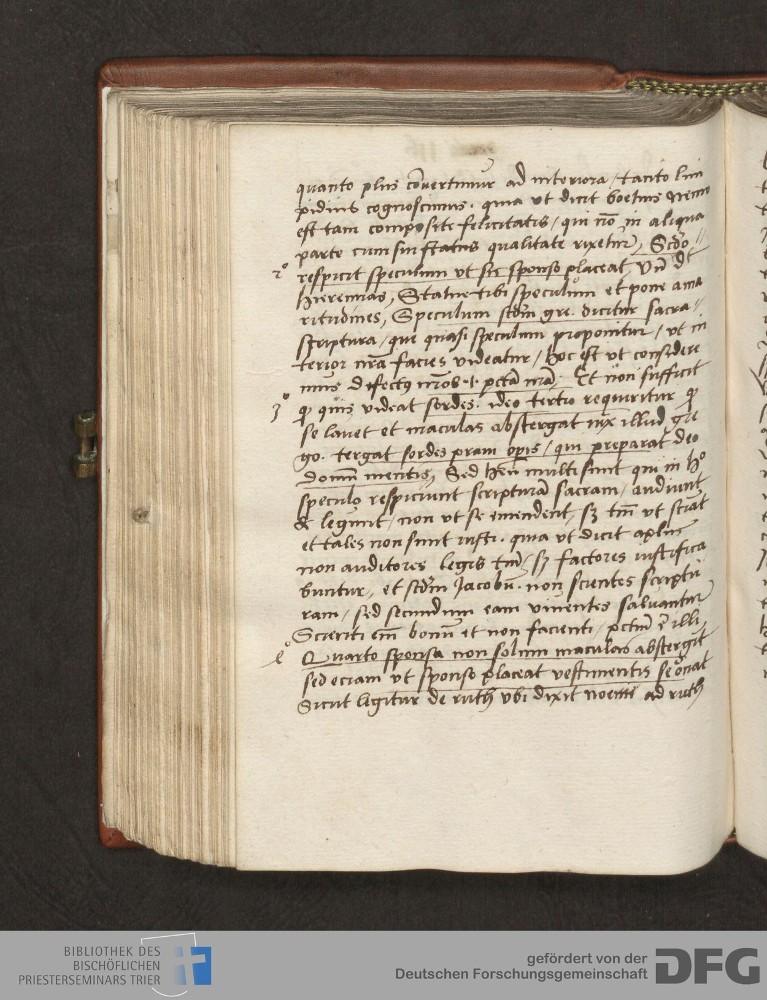 quanto plus cōuertimur ad interiora / tacito lim
pidius cognoscimus. quia ut dicit boetius Nemo
est tam composite felicitatis / qui nō in aliqua
parte cum sui status qualitate rixetur, Scdo
2° respicit speculum ut sic sponso placeat, Vn̄ dt
Hieremias, Statue tibi speculum et pone ama
ritudines, Speculum scdm gre. dicitur sacra
scriptura / que quasi speculum proponitur / ut in
terior nrā facies videatur / hoc est ut considere
mus defectus nros et pctā nrā. Et non sufficit
3° qp quis videat sordes. ideo tertio requiritur qp
se lauet et maculas abstergat iux illud gre
go. tergat sordes prauī opis / qui preparat deo
domū mentis, Sed heu multi sunt qui in ho
speculo respiciunt scripturā sacram / audiunt
& legunt / non ut se emendent / sz tm̄ ut sciāt
et tales non sunt iusti. quia ut dicit aplus
non auditores legis tm̄ / sz factores iustifica
buntur, et scdm Jacobū. non scientes scriptu
ram / sed secundum eam viuentes saluantur
Scienti em̄ bonū et non facienti / pctm̄ ē illi
4° Quarto sponsa non solum maculas abstergit
sed eciam ut sponso placeat vestimentis se ornat
Sicut legitur de ruth ubi dixit noemi ad ruth
BIBLIOTHEK DES
BISCHÖFLICHEN
PRIESTERSEMINARS TRIER
gefördert von der
Deutschen Forschungsgemeinschaft
DFG